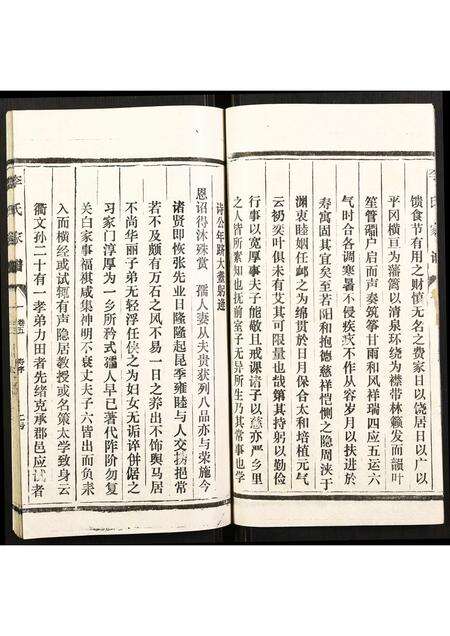 馈食节有用之财慎无名之费家日以饶居日以广以
平冈横亘为藩篱以清泉环绕为襟带林籁发而韻叶
笙管牖户启而声奏筑筝甘雨和风祥瑞四应五运六
气时合各调寒暑不侵疾疢不作从容岁月以扶进於
寿寓固其宜矣至若阳和抱德慈祥恺恻之隐周浃于
渊衷睦姻任邮之为绵贯於日月保合太和培植元气
云礽奕叶俱未有艾其可限量也哉第其持躬以勤俭
行事以宽厚事夫子能敬且戒课诸子以慈亦严乡里
之人皆所素知也抚前室子无异所生乃其常事也学
诗公年跻大耋躬逢
恩诏得沐殊赏 孺人妻从夫贵获列八品亦与荣施今
诸贤即恢张先业日隆隆起昆季雍睦与人交挹常
若不及颇有万石之风不易一日之养出不饰舆马居
不尚华丽子弟无轻浮任侠之为妇女无诟谇併倨之
习家门淳厚为一乡所矜式孺人早已著代阼阶勿复
关白家事福祺咸集神明不衰丈夫子六皆出而负耒
入而横经或试辄有声隐居教授或名策太学致身云
衢文孙二十有一孝弟力田者先绪克承郡邑应试者
李氏家谱
卷五
寿序
李氏家谱